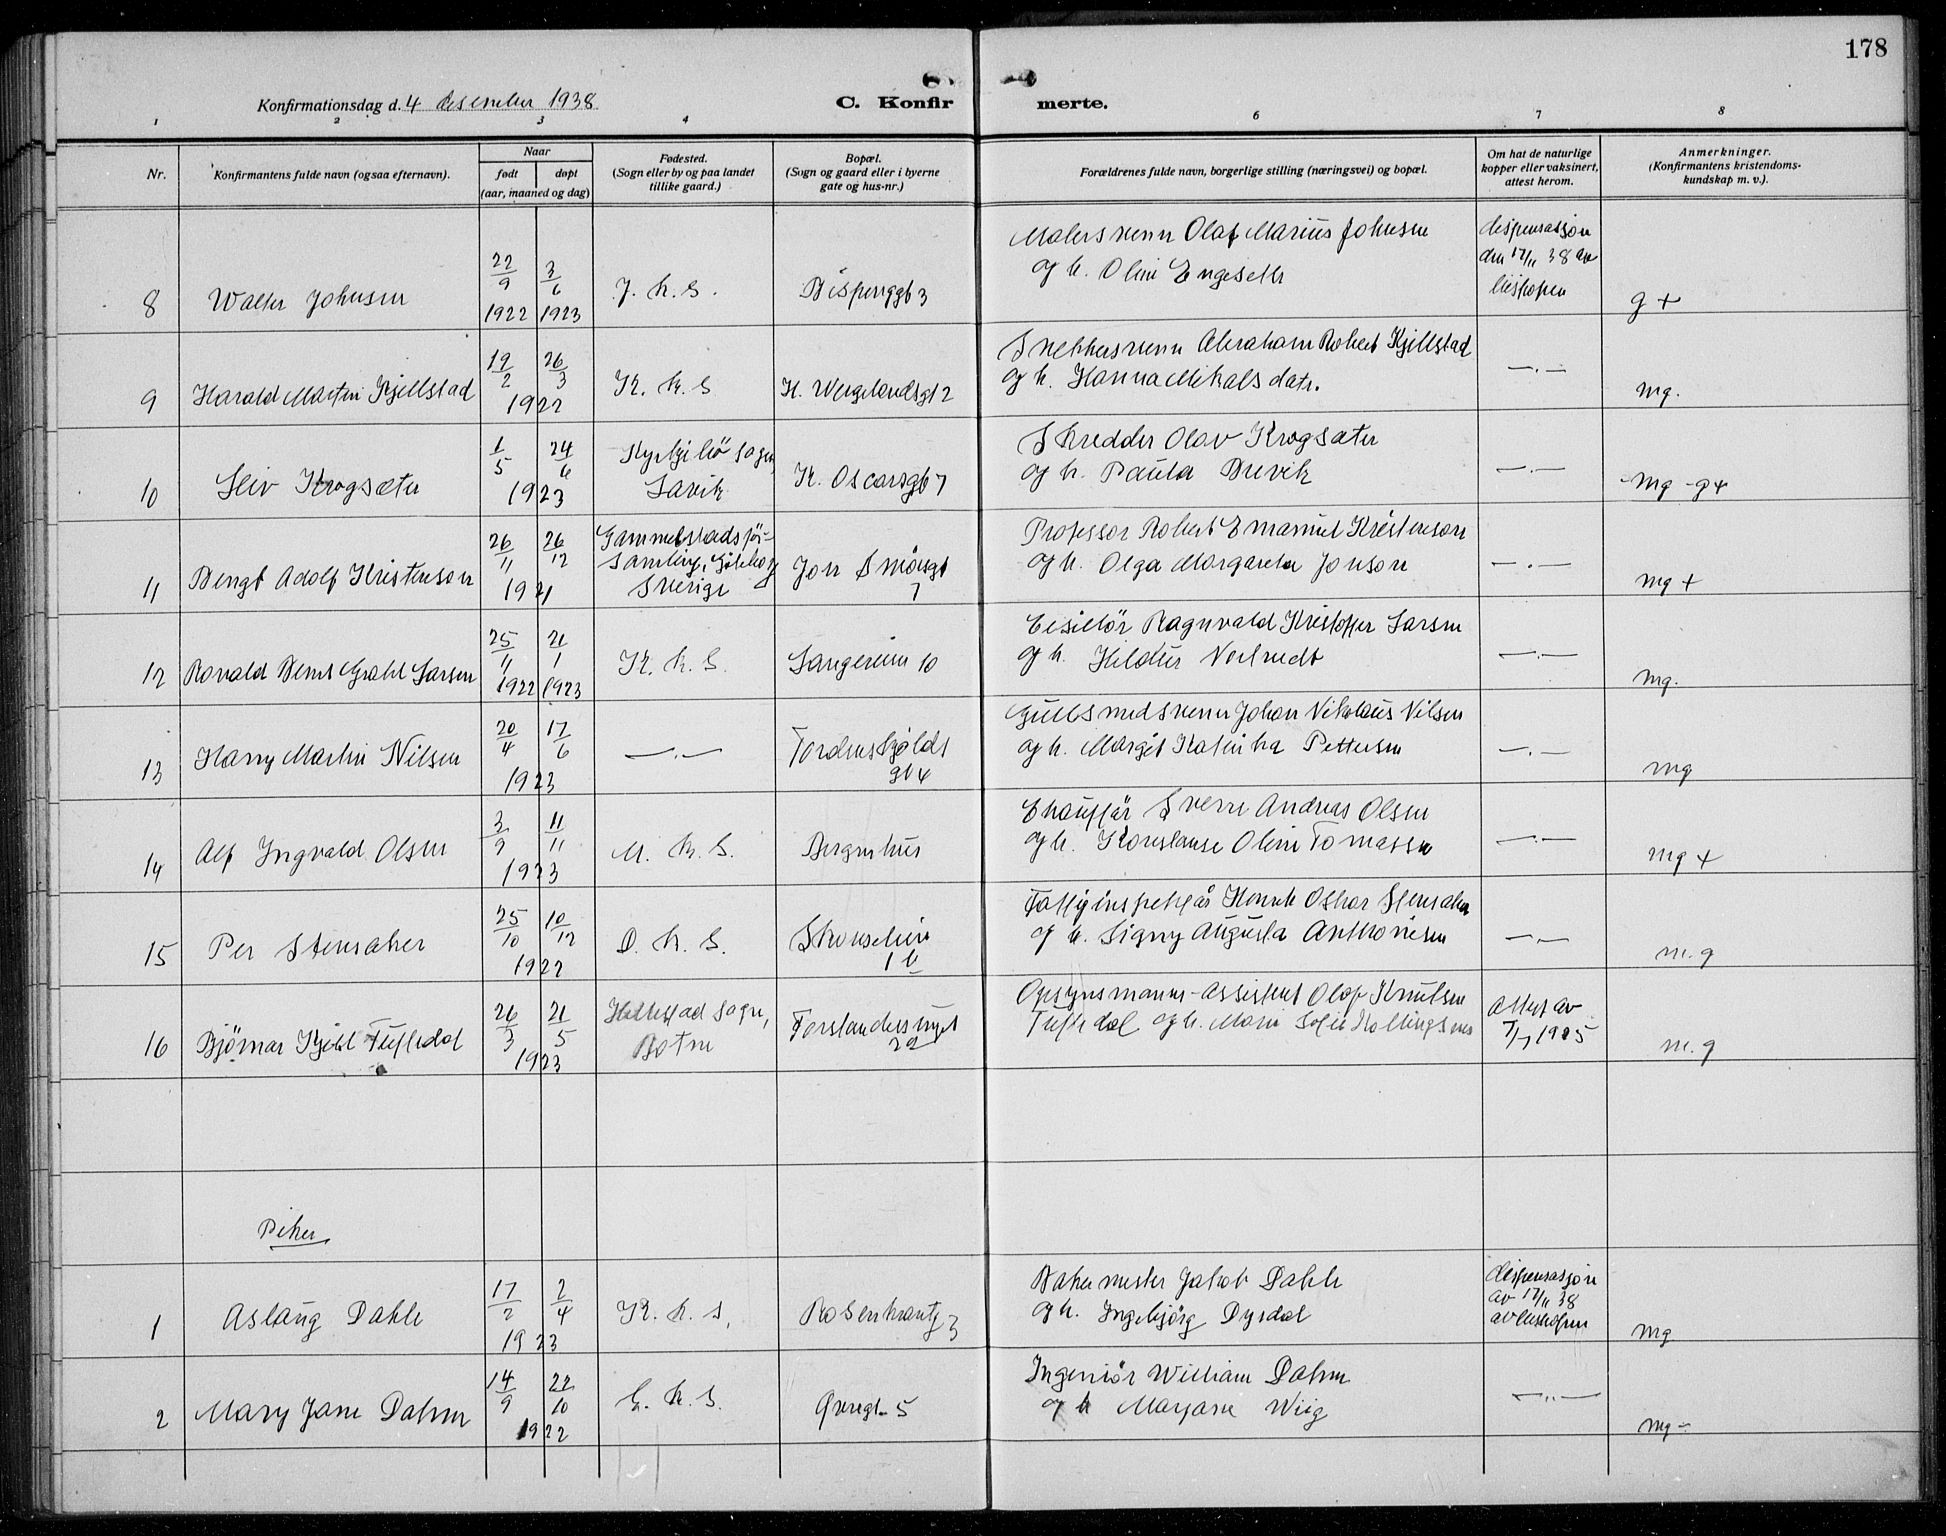 178
Konfirmationsdag d. 4 desember 1938
C. Konfirmerte.
1 2 3 4 6 7 8
Nr.
Konfirmantens fulde navn (ogsaa efternavn).
Naar
født døpt
(aar, maaned og dag)
Fødested.
(Sogn eller by og paa landet
tillike gaard.)
Bopæl.
(Sogn og gaard eller i byerne
gate og hus-nr.)
Forældrenes fulde navn, borgerlige stilling (næringsvei) og bopæl.
Om hat de naturlige
kopper eller vaksinert,
attest herom.
Anmerkninger.
(Konfirmantens kristendoms-
kundskap m. v.).
8 Walter Johnsen
22/9 1922 3/6 1923
J. k. s.
Bispenggt 3
Malersvenn Olaf Marius Johnsen
og h. Oline Engeseth
dispensasjon
den 17/11 38 av
biskopen
g +
9 Harald Martin Kjellstad
19/2 26/3
1922
K. k. s
H. Wergelandsgt 2
Snekkersvenn Abraham Robert Kjellstad
og h. Hanna Mikalsdatr.
—.—
mg.
10 Leiv Krogsæter
1/5 24/6
1923
sogn,
K. Oscarsgt 7
Skredder Olav Krogsæter
og h. Paula Brevik
—.—
mg -g+
11 Bengt Adolf Kristenson
26/11 26/12
1921
Gammelstadsför-
samling, Göteborg
Sverige
Jon Smörsgt
7
Professor Robert Emanuel Kristenson
og h. Olga Margareta Jonson
—.—
mg +
12 Ronald Bernt Grahl Larsen
25/11 1922 21/1 1923
K. k. s.
10
Ragnvald Kristoffer Larsen
og h. Hildur
—.—
mg.
13 Harry Martin Nilsen
20/4 17/6
1923
—.—
Tordenskjolds
gt 4
Gullsmedsvenn Johan Nikolaus Nilsen
og h. Margit Katinka Pettersen
—.—
mg
14 Alf Ingvald Olsen
3/9 11/11
1923
M. k. s.
Bergenhus
Sverre Andreas Olsen
og h. Konstanse Oline Tomassen
—.—
mg +
15 Per Stensaker
25/10 10/12
1922
D. k. s.
1 b
Oskar Stensaker
og h. Signy Augusta Anthonisen
—.—
m. g
16 Bjørnar Kjell Tuftedal
26/3 21/5
1923
Hillestad sogn,
Botne
22
Opsynsmann-Assistent Olaf Knutsen
Tuftedal og h. Marie Sofie
Attest av
m. g
Piker
1 Aslaug Dahle
17/2 2/4
1923
K. k. s.
Rosenkrantz 3
Bakermester Jakob Dahle
og h. Ingebjørg Dysdal
dispensasjon
av 17/11 38
av biskopen
mg
2 Mary Jane Dahm
14/9 22/10
1922
k. s.
Øvregt. 5
Ingeniør William Dahm
og h Marjane Wiig
—„—
mg -